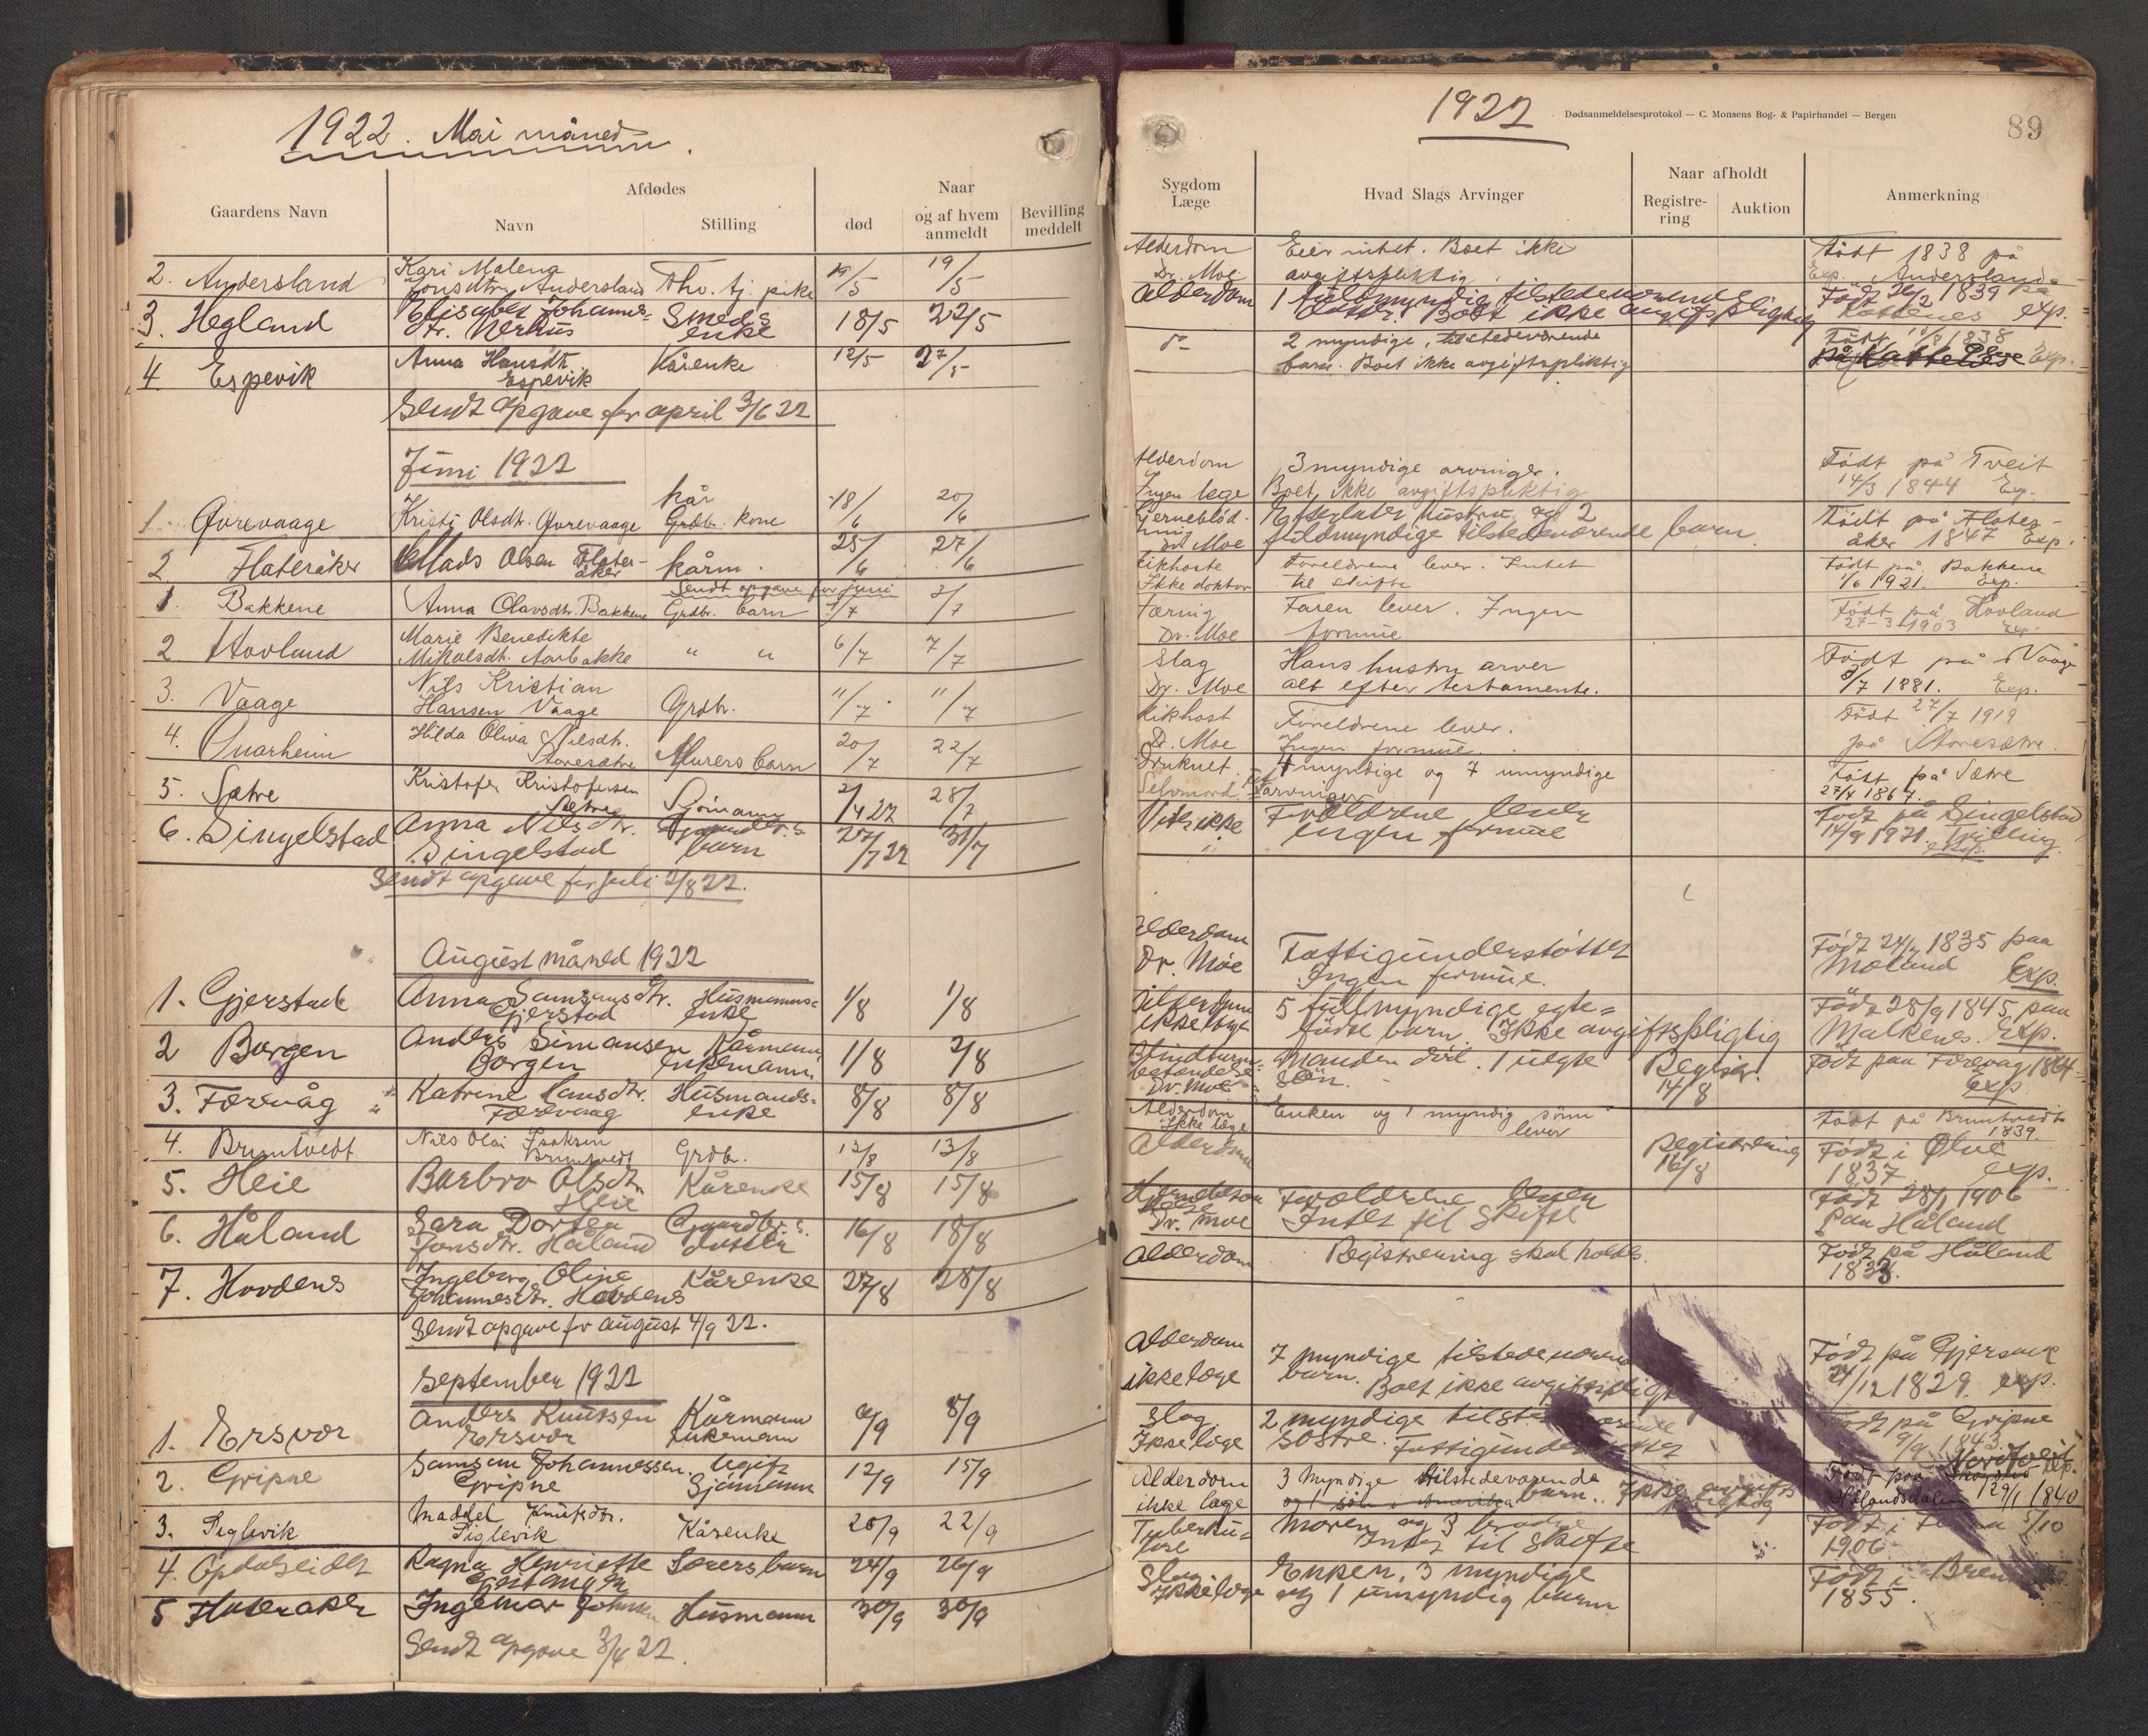 1922. Mai måned.
Gaardens Navn
Afdødes
Navn
Stilling
Naar
død
og af hvem anmeldt
Bevilling meddelt
2. Andersland Kari Malena
Jonsdtr. Andersland Fhv. tj. pike 19/5 19/5
3. Hegland Elisabet Johannes-
dtr. Nerhus Smeds
enke 18/5 22/5
4 Espevik Anna Hansdtr.
Espevik Kårenke 12/5 27/5
Sendt opgave for april 3/6 22
Juni 1922
1. Øvrevaage Kristi Olsdtr. Øvrevaage kår
Grdbr. kone 18/6 20/6
2. Flateråker Mads Olsen Flater-
åker kårm. 25/6 27/6
Sendt opgave for juni
1. Bakkene Anna Olavsdtr. Bakkene Grdbr. barn /7 3/7
2 Hovland Marie Benedikte
Mikalsdtr. " " 6/7 7/7
3. Vaage Nils Kristian
Hansen Vaage Grdbr. 11/7 11/7
4. Onarheim Hilda Oliva Nilsdtr.
Storesætre Murers barn 20/7 22/7
5. Sætre Kristofer Kristofersen
Sætre Sjømann 2/4 22 28/7
6. Singelstad Anna Nilsdtr.
Singelstad Gaardbr.s
barn 27/7 22 31/7
Sendt opgave for juli 2/8 22.
August måned 1922
1. Gjerstad Anna Samsonsdtr.
Gjerstad Husmanns-
enke 1/8 1/8
2 Borgen Anders Simonsen
Borgen Kårmann
enkemann. 1/8 2/8
3. Færevåg Katrine Hansdtr.
Færevaag Husmands-
enke 8/8 8/8
4. Bruntvedt Nils Olai Isaksen
Bruntvedt Grdbr. 12/8 13/8
5. Heie Barbro Olsdtr.
Heie Kårenke 15/8 15/8
6. Håland Sara Dortea
Jonsdtr. Håland Gaardbr.s
datter 16/8 18/8
7. Hovdenes Ingeborg Oline
Johannesdtr. Kårenke 27/8 28/8
Sendt opgave for august 4/9 22.
September 1922
1. Ersvær Anders Knutsen
Ersvær Kårmann
enkemann 6/9 8/9
2. Gripne Samson Johannessen
Gripne Ugift
Sjømann 12/9 15/9
3. Teglevik Maddel Knutsdtr.
Teglevik Kårenke 20/9 22/9
4. Opdalseidet Ragna Henriette 24/9 26/9
5 Flateraker Ingemar Husmann 30/9 30/9
Sendt opgave
1922
Dødsanmeldelsesprotokol — C. Monsens Bog- & Papirhandel — Bergen
89
Sygdom
Læge
Hvad Slags Arvinger
Naar afholdt
Registre-
ring
Auktion
Anmerkning
Alderdom
Dr. Moe Eier intet. Boet ikke
avgiftspliktig Født 1838 på
Exp. Andersland
Alderdom 1 fuldmyndig tilstedeværende
datter. Boet ikke avgiftspligtig Født 26/2 1839 på
exp.
2 myndige, tilstedeværende
barn. Boet ikke avgiftspliktig Født 1838
på Exp.
Alderdom
Ingen læge 3 myndige arvinger.
Boet ikke avgiftspliktig Født på Tveit
14/3 1844 Exp.
Hjerneblød-
ning
Dr. Moe Efterlater hustru og 2
fuldmyndige tilstedeværende barn. Født på Flater-
åker 1847 Exp.
Kikhoste
Ikke doktor Foreldrene lever. Intet
til skifte Født på Bakkene
1/6 1921. Exp.
Tæring
Dr. Moe Faren lever. Ingen
formue Født på Hovland
27-3-1903 Exp.
Slag
Dr. Moe Hans hustru arver
alt efter testamente. Født på Vaage
8/7 1881. Exp.
Kikhost
Dr. Moe Foreldrene lever.
Ingen formue. Født 27/7 1919
på Storesætre.
Druknet
Selvmord 4 myndige og 7 umyndige
arvinger Født på Sætre
27/4 1867.
Vites ikke Forældrene lever
ingen formue Født på Singelstad
14/9 1921. Tvilling.
Exp.
Alderdom
Dr. Moe Fattigunderstøttet
Ingen formue. Født 24/ 1835 paa
Møland Exp.
Alderdom
ikke lægt 5 fullmyndige egte-
fødte barn. Ikke avgiftspligtig Født 28/9 1845 paa
Malkenes. Exp.
Dr. Moe Manden død. 1 uegte
søn. Registr.
14/8 Født paa Færevag 1864
Exp
Alderdom
Ikke læge Enken og 1 myndig sønn
lever Født på Bruntvedt
1839.
Alderdom Registrering
16/8 Født i Ølve
1837 exp.
Dr. Moe Forældrene lever
Intet til Skifte Født 28/1 1906
paa Håland
Alderdom Registrering skal holdes. Født på Håland
1833.
Alderdom
ikke læge 7 myndige tilstedeværende
barn. Boet ikke avgiftspligtig Født på Gjersvik
/12 1829. exp.
Slag
Ikke læge 2 myndige
søstre. Født på Gripne
9/9 1843
Alderdom
ikke læge 3 myndige tilstedeværende
barn. Ikke avgifts
pligtig Født paa Nordtveit
Hålandsdalen 29/1 1840
Tuberku-
lose Moren og 3 brødre
Intet til skifte Født i 5/10
1906
Slag
Ikke læge Enken, 3 myndige
og 1 umyndig barn Født i
1855.